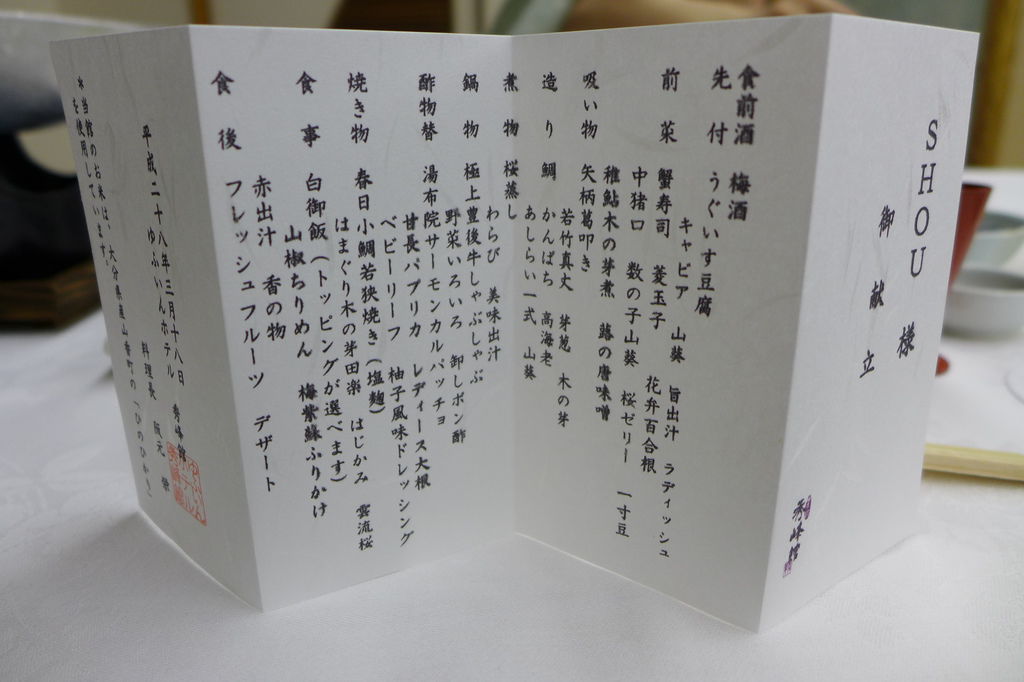 SHOU 様
御献立
秀峰館
食前酒 梅酒
先付 うぐいす豆腐
キャビア 山葵 旨出汁 ラディッシュ
前菜 蟹寿司 菱玉子 花弁百合根
中猪口 数の子山葵 桜ゼリー 一寸豆
稚鮎木の芽煮 蕗の唐味噌
吸い物 矢柄葛叩き
若竹真丈 芽葱 木の芽
造り 鯛 かんぱち 高海老
あしらい一式 山葵
煮物 桜蒸し
わらび 美味出汁
鍋物 極上豊後牛しゃぶしゃぶ
野菜いろいろ 卸しポン酢
酢物替 湯布院サーモンカルパッチョ
甘長パプリカ レディース大根
ベビーリーフ 柚子風味ドレッシング
焼き物 春日小鯛若狭焼き(塩麹)
はまぐり木の芽田楽 はじかみ 雲流桜
食事 白御飯(トッピングが選べます)
山椒ちりめん 梅紫蘇ふりかけ
赤出汁 香の物
食後 フレッシュフルーツ デザート
平成二十八年三月十八日
ゆふいんホテル 秀峰館
料理長 阪元 学
*当館のお米は、大分県産山香町の「ひのひかり」
を使用しています。